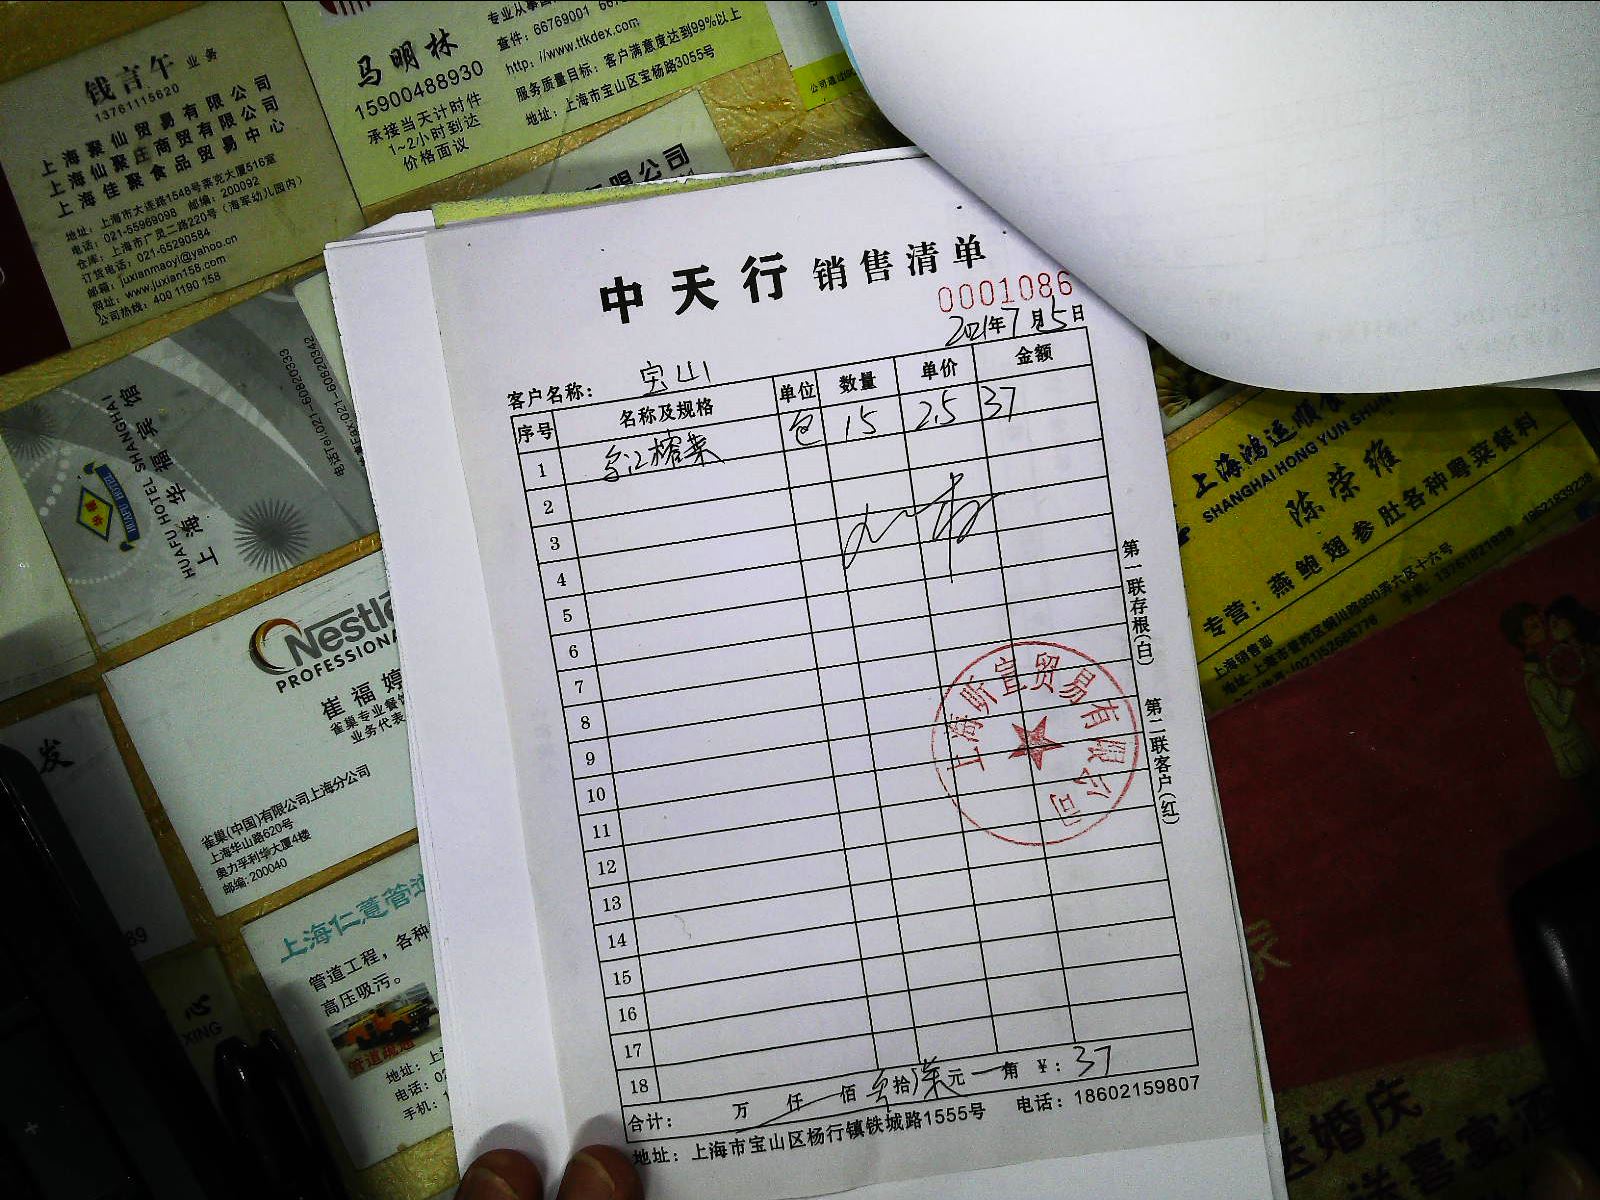 钱言午 业务
13761115620
上海聚仙贸易有限公司
上海仙聚庄商贸有限公司
上海佳聚食品贸易中心
地址：上海市大连路1548号莱克大厦516室
电话：021-55969098 邮编：200092
仓库：上海市广灵二路220号（海军幼儿园内）
订货电话：021-65290584
邮箱：juxianmaoyi@yahoo.cn
网址：www.juxian158.com
公司热线：400 1190 158
马明林
15900488930
承接当天计时件
1~2小时到达
价格面议
查件：66769001
http://www.ttkdex.com
服务质量目标：客户满意度达到99%以上
地址：上海市宝山区宝杨路3055号
限公司
中天行 销售清单
0001086
2021年7月15日
客户名称： 宝山
序号 名称及规格 单位 数量 单价 金额
1 乌江榨菜 包 15 2.5 37
2
3
4
5
6
7
8
9
10
11
12
13
14
15
16
17
18
合计： 万 仟 佰 叁拾柒元 一角 ￥：37
地址：上海市宝山区杨行镇铁城路1555号 电话：18602159807
第一联存根(白)
第二联客户(红)
上海昕宣贸易有限公司
上海华福宾馆
HUAFU HOTEL SHANGHAI
电话Tel:021-60820333
传真Fax:021-60820342
HUAFU HOTEL
Nestlé
PROFESSIONAL
崔福婷
雀巢专业餐饮
业务代表
雀巢(中国)有限公司上海分公司
上海华山路620号
奥力孚利华大厦4楼
邮编: 200040
发
89
心
XING
上海仁薏管道
管道工程，各种
高压吸污。
管道疏通
地址：上
电话：02
手机：1
上海鸿运顺
SHANGHAI HONG YUN SHUN
陈荣雄
专营：燕鲍翅参肚各种粤菜餐料
上海销售部
地址：上海市普陀区铜川路990弄六区十六号
(021)52665776 手机：13761821939 18621839238
送婚庆
送喜宴酒